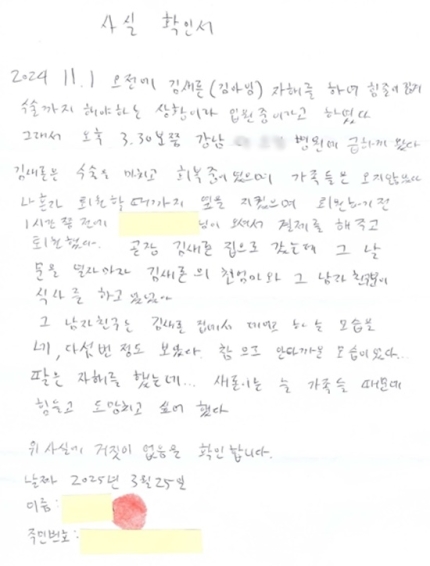 사실 확인서
2024 11.1 오전에 김새론(김아임) 자해를 하여 힘줄이 끊겨
수술까지 해야하는 상황이라 입원중이라고 하였다
그래서 오후 3.30분쯤 강남 병원에 급하게 갔다
김새론은 수술을 마치고 회복중이였으며 가족들은 오지않았다
나혼자 퇴원할때까지 옆을 지켰으며 퇴원하기전
1시간쯤 전에 님이 오셔서 결제를 해주고
퇴원했다. 곧장 김새론 집으로 갔는데 그 날
문을 열자마자 김새론의 친엄마와 그 남자친구분이
식사를 하고 있었다
그 남자친구는 김새론 집에서 데면 하는 모습을
네, 다섯번 정도 보았다. 참으로 안타까운 모습이었다...
팔은 자해를 했는데... 새론이는 늘 가족들 때문에
힘들고 도망치고 싶어 했다
위 사실에 거짓이 없음을 확인합니다.
날짜 2025년 3월 25일
이름:
주민번호: